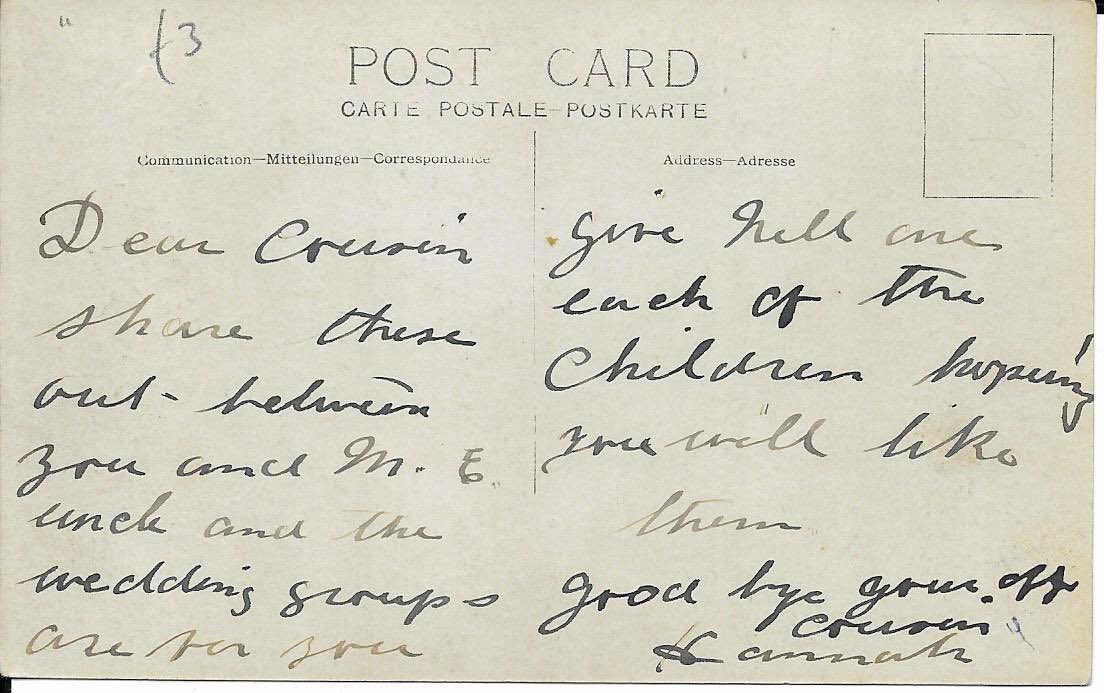 {3
POST CARD
CARTE POSTALE—POSTKARTE
Communication—Mitteilungen—Correspondance
Address—Adresse
Dear Cousin
share these
out between
you and M. E.
uncle and the
wedding groups
are for you
give Nell one
each of the
Children hopeing
you will like
them
good bye your aff
cousin
Hannah